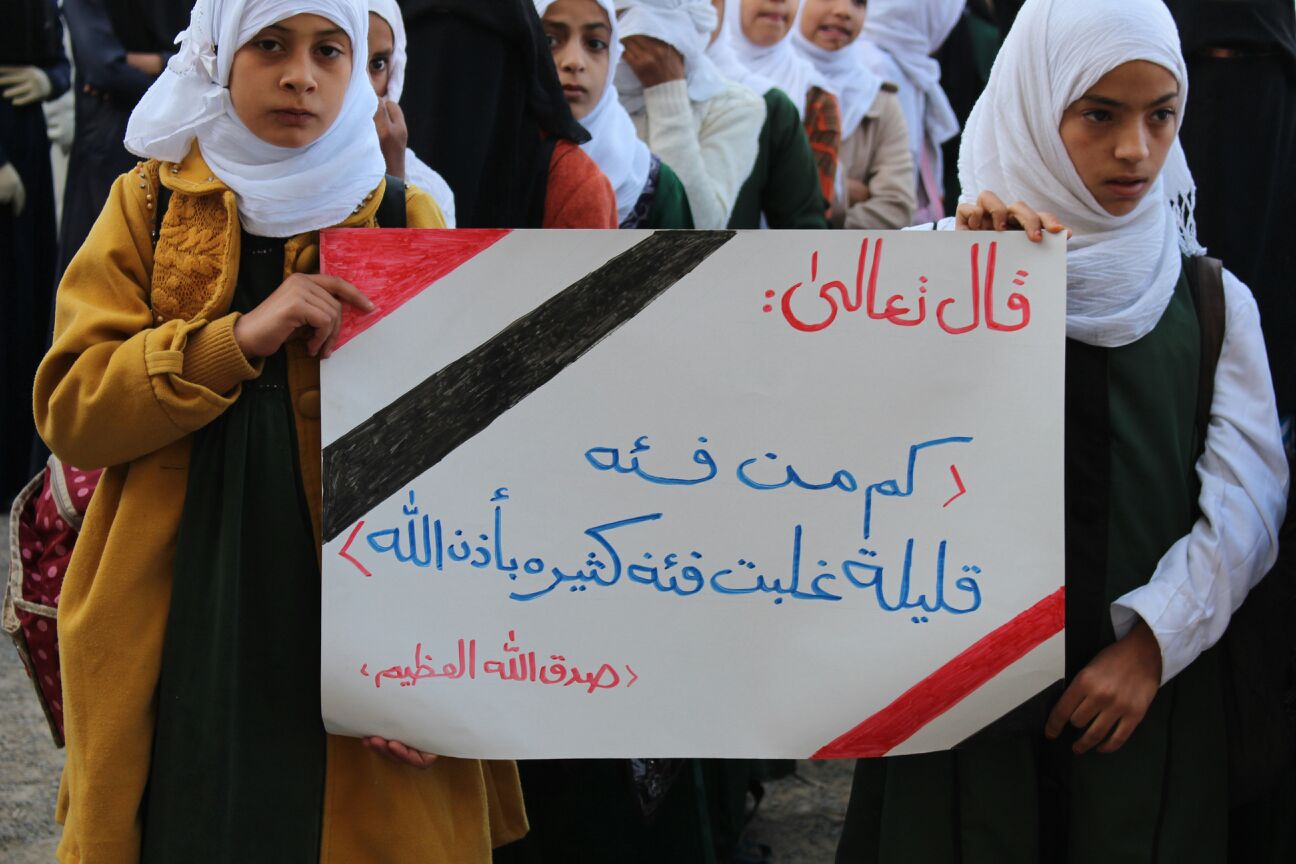 قال تعالىٰ :
< كم من فئه
قليلة غلبت فئه كثيره بأذن الله >
< صدق الله العظيم >